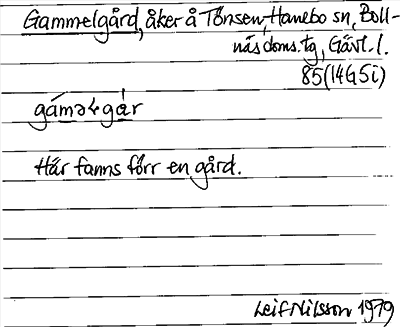 Gammelgård, åker å Tönsen, Hanebo sn, Boll-
näs doms. tg, Gävl. l.
85 (14G 5i)
gámələgàr
Här fanns förr en gård.
Leif Nilsson 1979